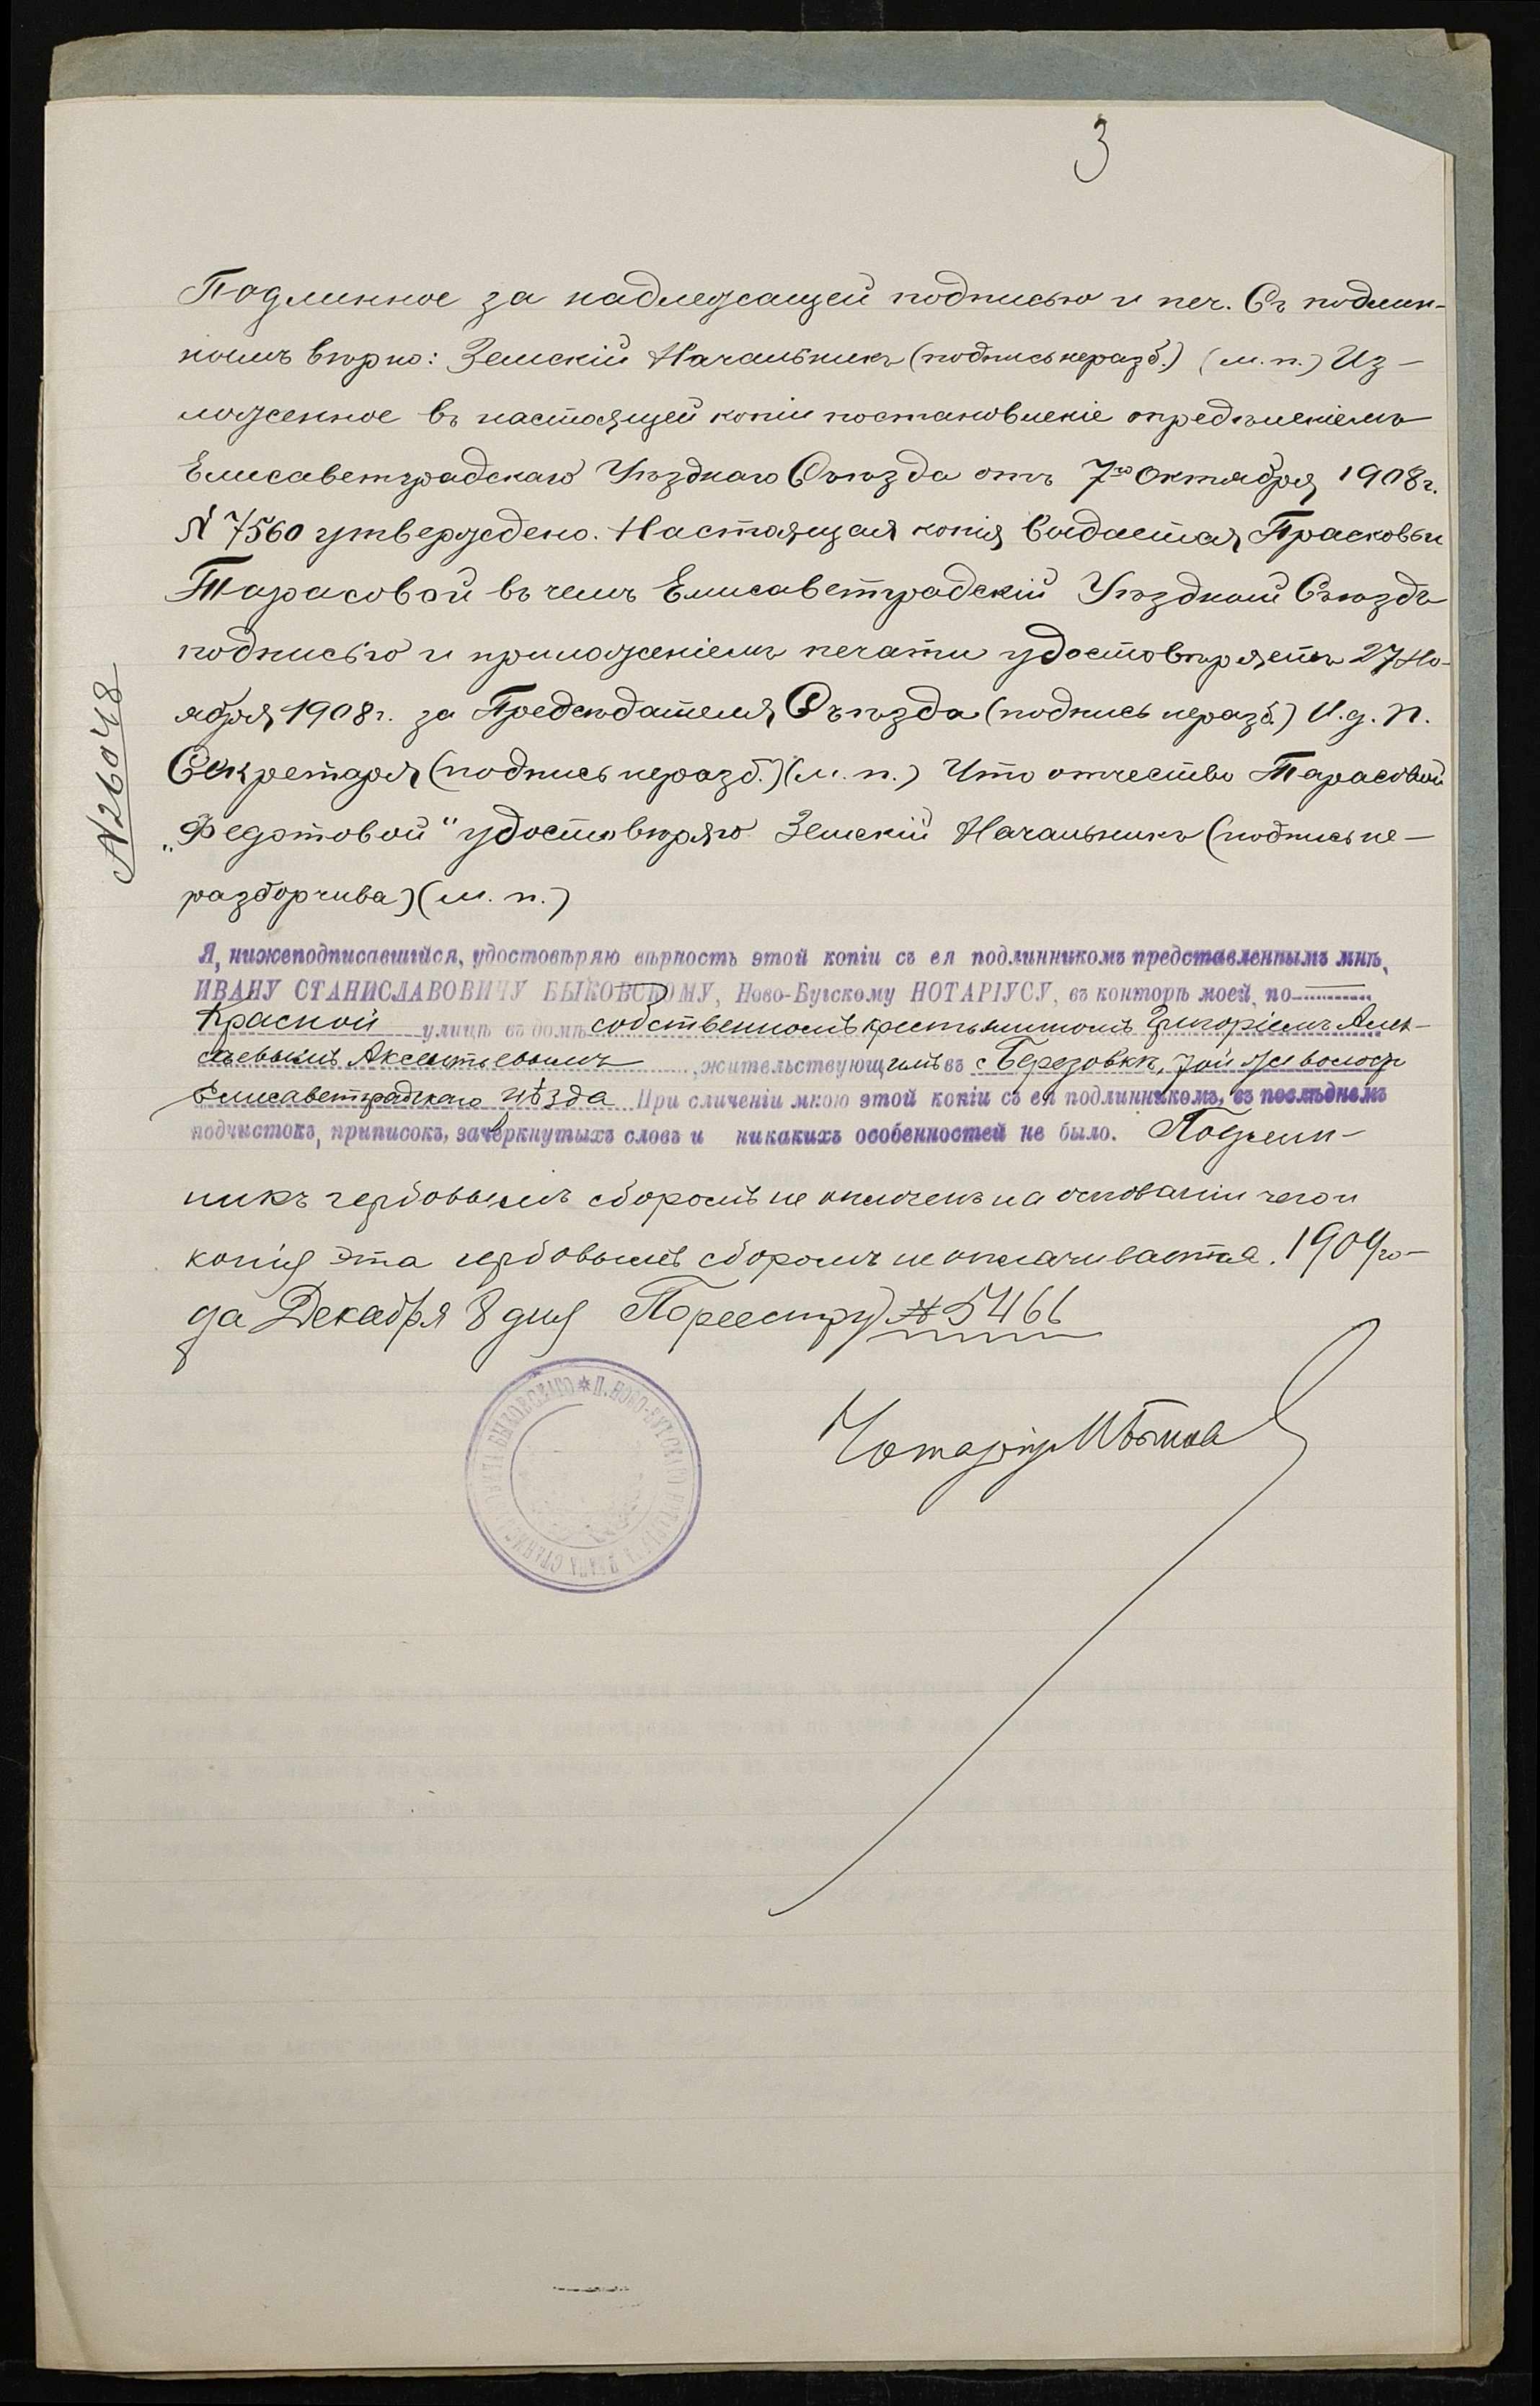 3
Подлинное за надлежащей подписью и печ. Съ подлин-
нымъ вѣрно: Земскій Начальникъ (подпись неразб.) (м. п.) Из-
ложенное въ настоящей копіи постановленіе опредѣленіемъ
Елисаветградскаго Уѣзднаго Съѣзда отъ 7го Октября 1908 г.
№ 7560 утверждено. Настоящая копія выдается Прасковьи
Тарасовой въ чемъ Елисаветградскій Уѣздный Съѣздъ
подписью и приложеніемъ печати удостовѣряетъ 27 Но-
ября 1908 г. за Предсѣдателя Съѣзда (подпись неразб.) И. д. п.
Секретаря (подпись неразб.) (м. п.) Что отчество Тарасовой
„Федотовой" удостовѣряю Земскій Начальникъ (подпись не-
разборчива) (м. п.)
№ 26048
Я, нижеподписавшійся, удостовѣряю вѣрность этой копіи съ ея подлинникомъ представленнымъ мнѣ,
ИВАНУ СТАНИСЛАВОВИЧУ БЫКОВСКОМУ, Ново-Бугскому НОТАРІУСУ, въ конторѣ моей, по
Красной улицѣ въ домѣ собственномъ крестьяниномъ Григоріемъ Алек-
сѣевымъ Аксентьевымъ, жительствующимъ въ с Березовкѣ, той же волости
Елисаветградскаго уѣзда При сличеніи мною этой копіи съ ея подлинникомъ, въ послѣднемъ
подчистокъ, приписокъ, зачеркнутыхъ словъ и никакихъ особенностей не было. Подлин-
никъ гербовымъ сборомъ не оплоченъ на основаніи чего и
копія эта гербовымъ сборомъ не оплачивается. 1909 го-
да Декабря 8 дня По реестру № 5466
Нотаріусъ